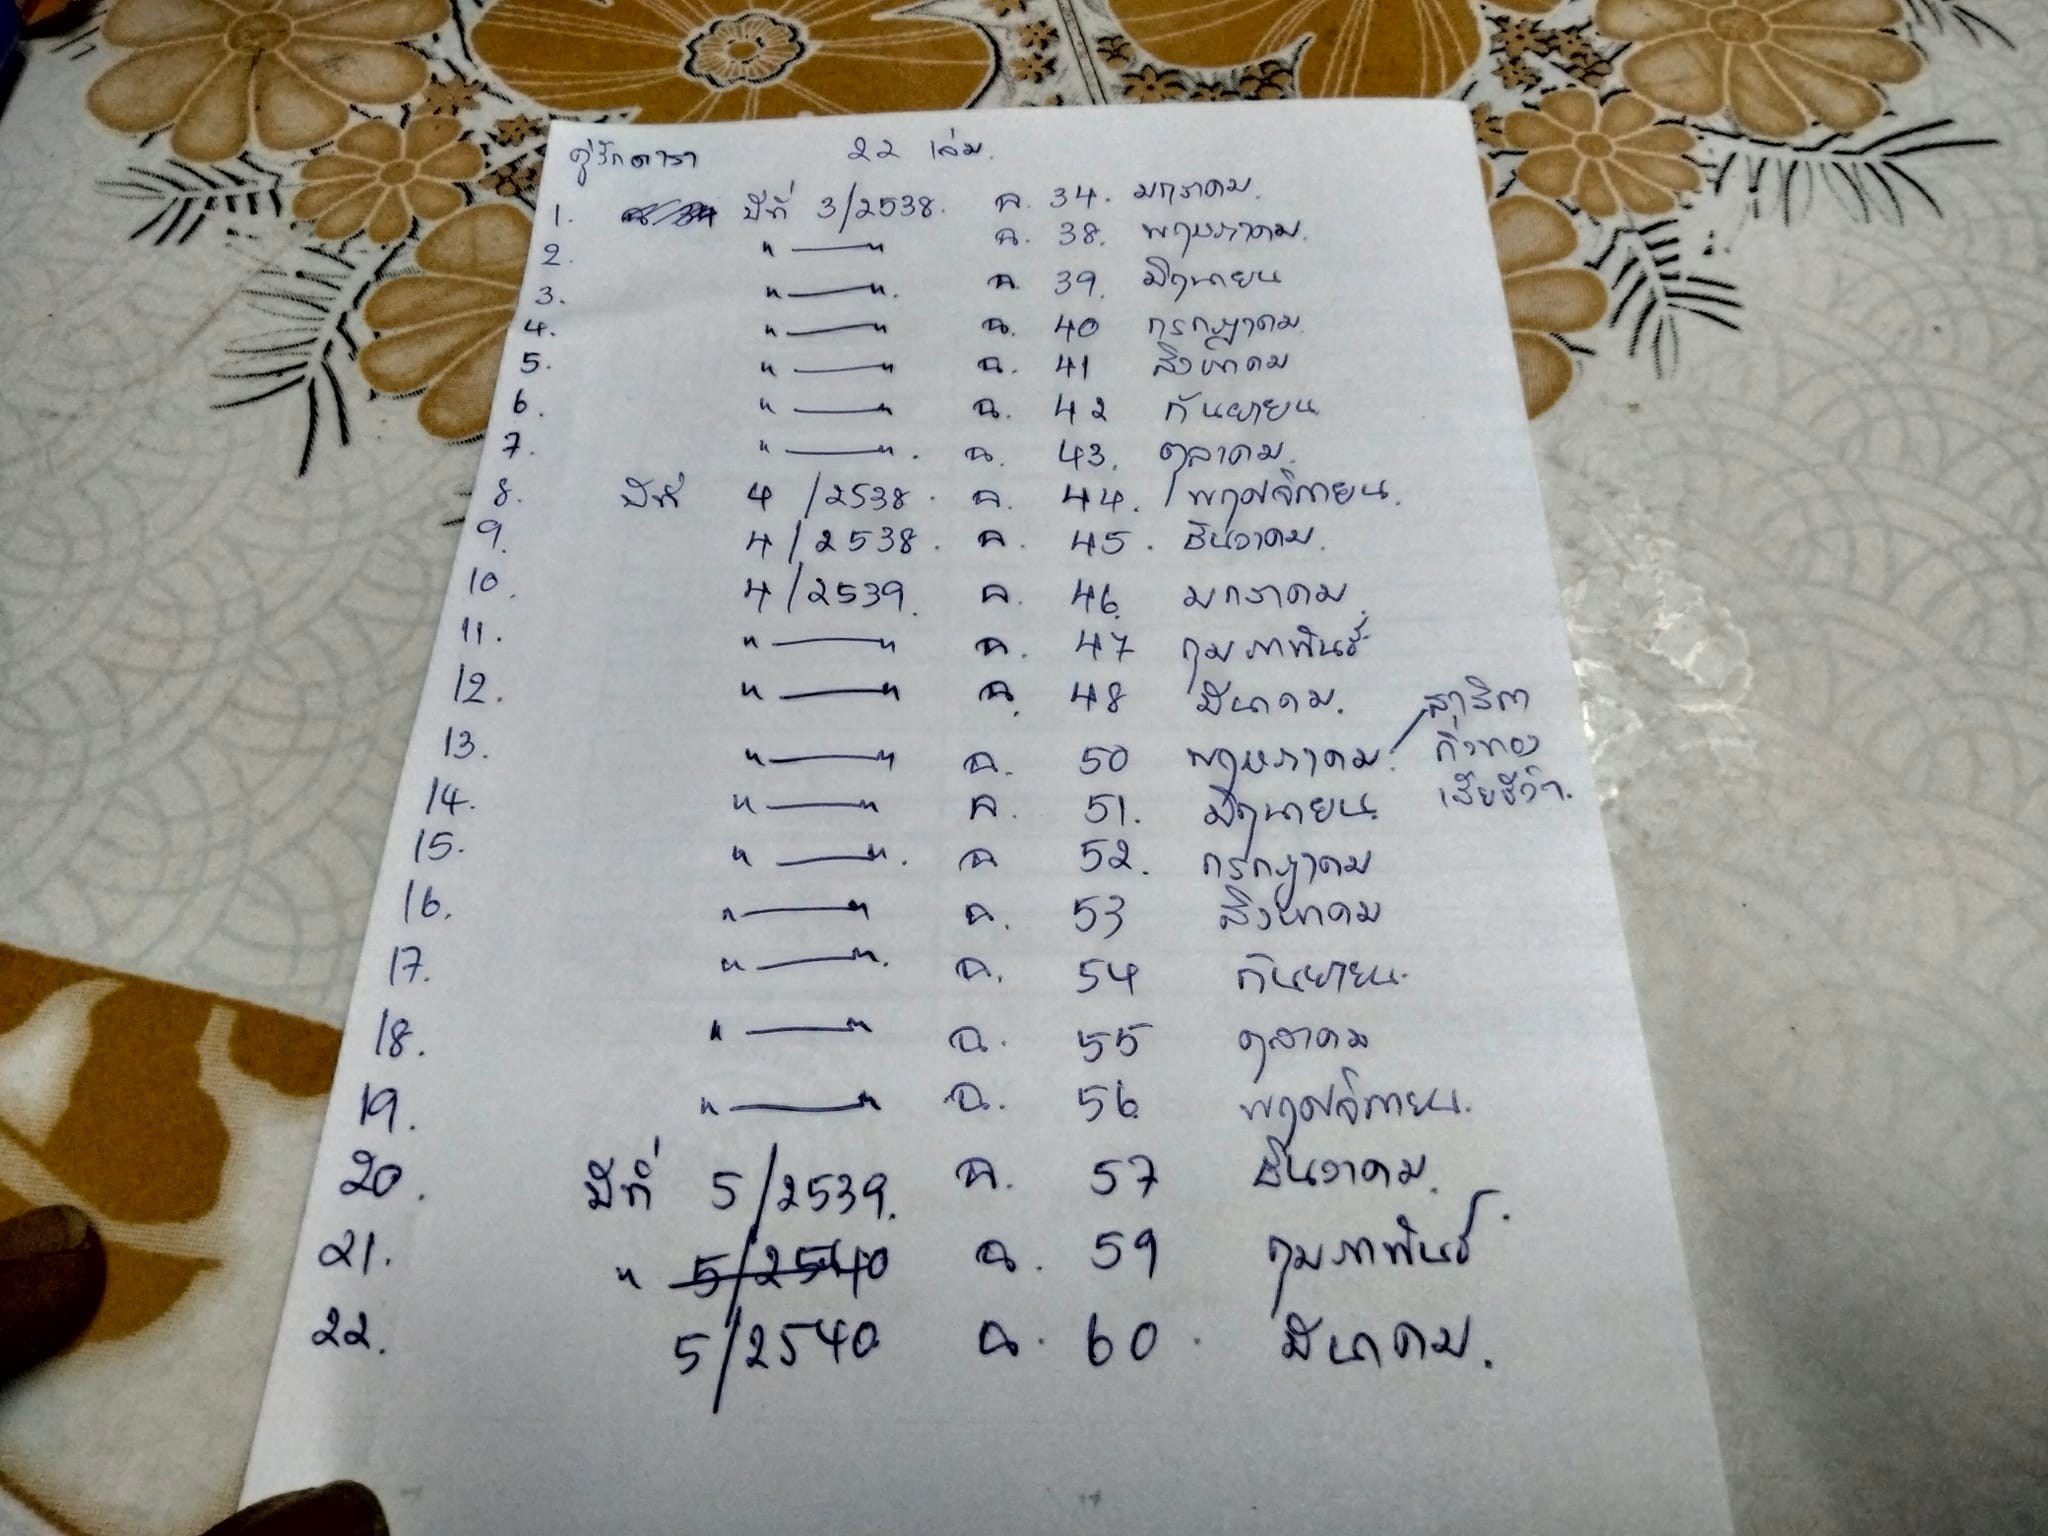 คู่รักดารา 22 เล่ม.
1. ปีที่ 3/2538. ฉ. 34. มกราคม.
2. " —— " ฉ. 38. พฤษภาคม.
3. " —— ". ฉ. 39. มิถุนายน
4. " —— " ฉ. 40 กรกฎาคม.
5. " —— " ฉ. 41 สิงหาคม
6. " —— " ฉ. 42 กันยายน
7. " —— ". ฉ. 43. ตุลาคม.
8. ปีที่ 4 /2538. ฉ. 44. พฤศจิกายน.
9. 4/2538. ฉ. 45. ธันวาคม.
10. 4/2539. ฉ. 46. มกราคม.
11. " —— " ฉ. 47 กุมภาพันธ์
12. " —— " ฉ. 48 มีนาคม.
13. " —— " ฉ. 50 พฤษภาคม. / สาริกา
กิ่งทอง
เสียชีวิต.
14. " —— " ฉ. 51. มิถุนายน
15. " —— ". ฉ 52. กรกฎาคม
16. " —— " ฉ. 53 สิงหาคม
17. " —— ". ฉ. 54 กันยายน.
18. " —— " ฉ. 55 ตุลาคม
19. " —— " ฉ. 56 พฤศจิกายน.
20. ปีที่ 5/2539. ฉ. 57 ธันวาคม.
21. " 5/2540 ฉ. 59 กุมภาพันธ์.
22. 5/2540 ฉ. 60. มีนาคม.